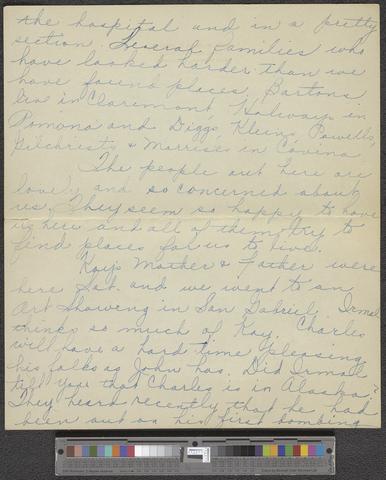 the hospital and in a pretty
section. Several families who
have looked harder than we
have found places. Bartons
live in Claremont, Halways in
Pomona and Diggs, Kleins, Powells,
Gilchrists & Morrises in Covina
The people out here are
lovely and so concerned about
us. They seem so happy to have
us here and all of them try to
find places for us to live.
Kay's Mother & Father were
here Sat. and we went to an
Art Showing in San Gabriel. Irma
thinks so much of Kay. Charles
will have a hard time pleasing
his folks as John has. Did Irma
tell you that Charles is in Alaska?
They heard recently that he had
been out on his first bombing